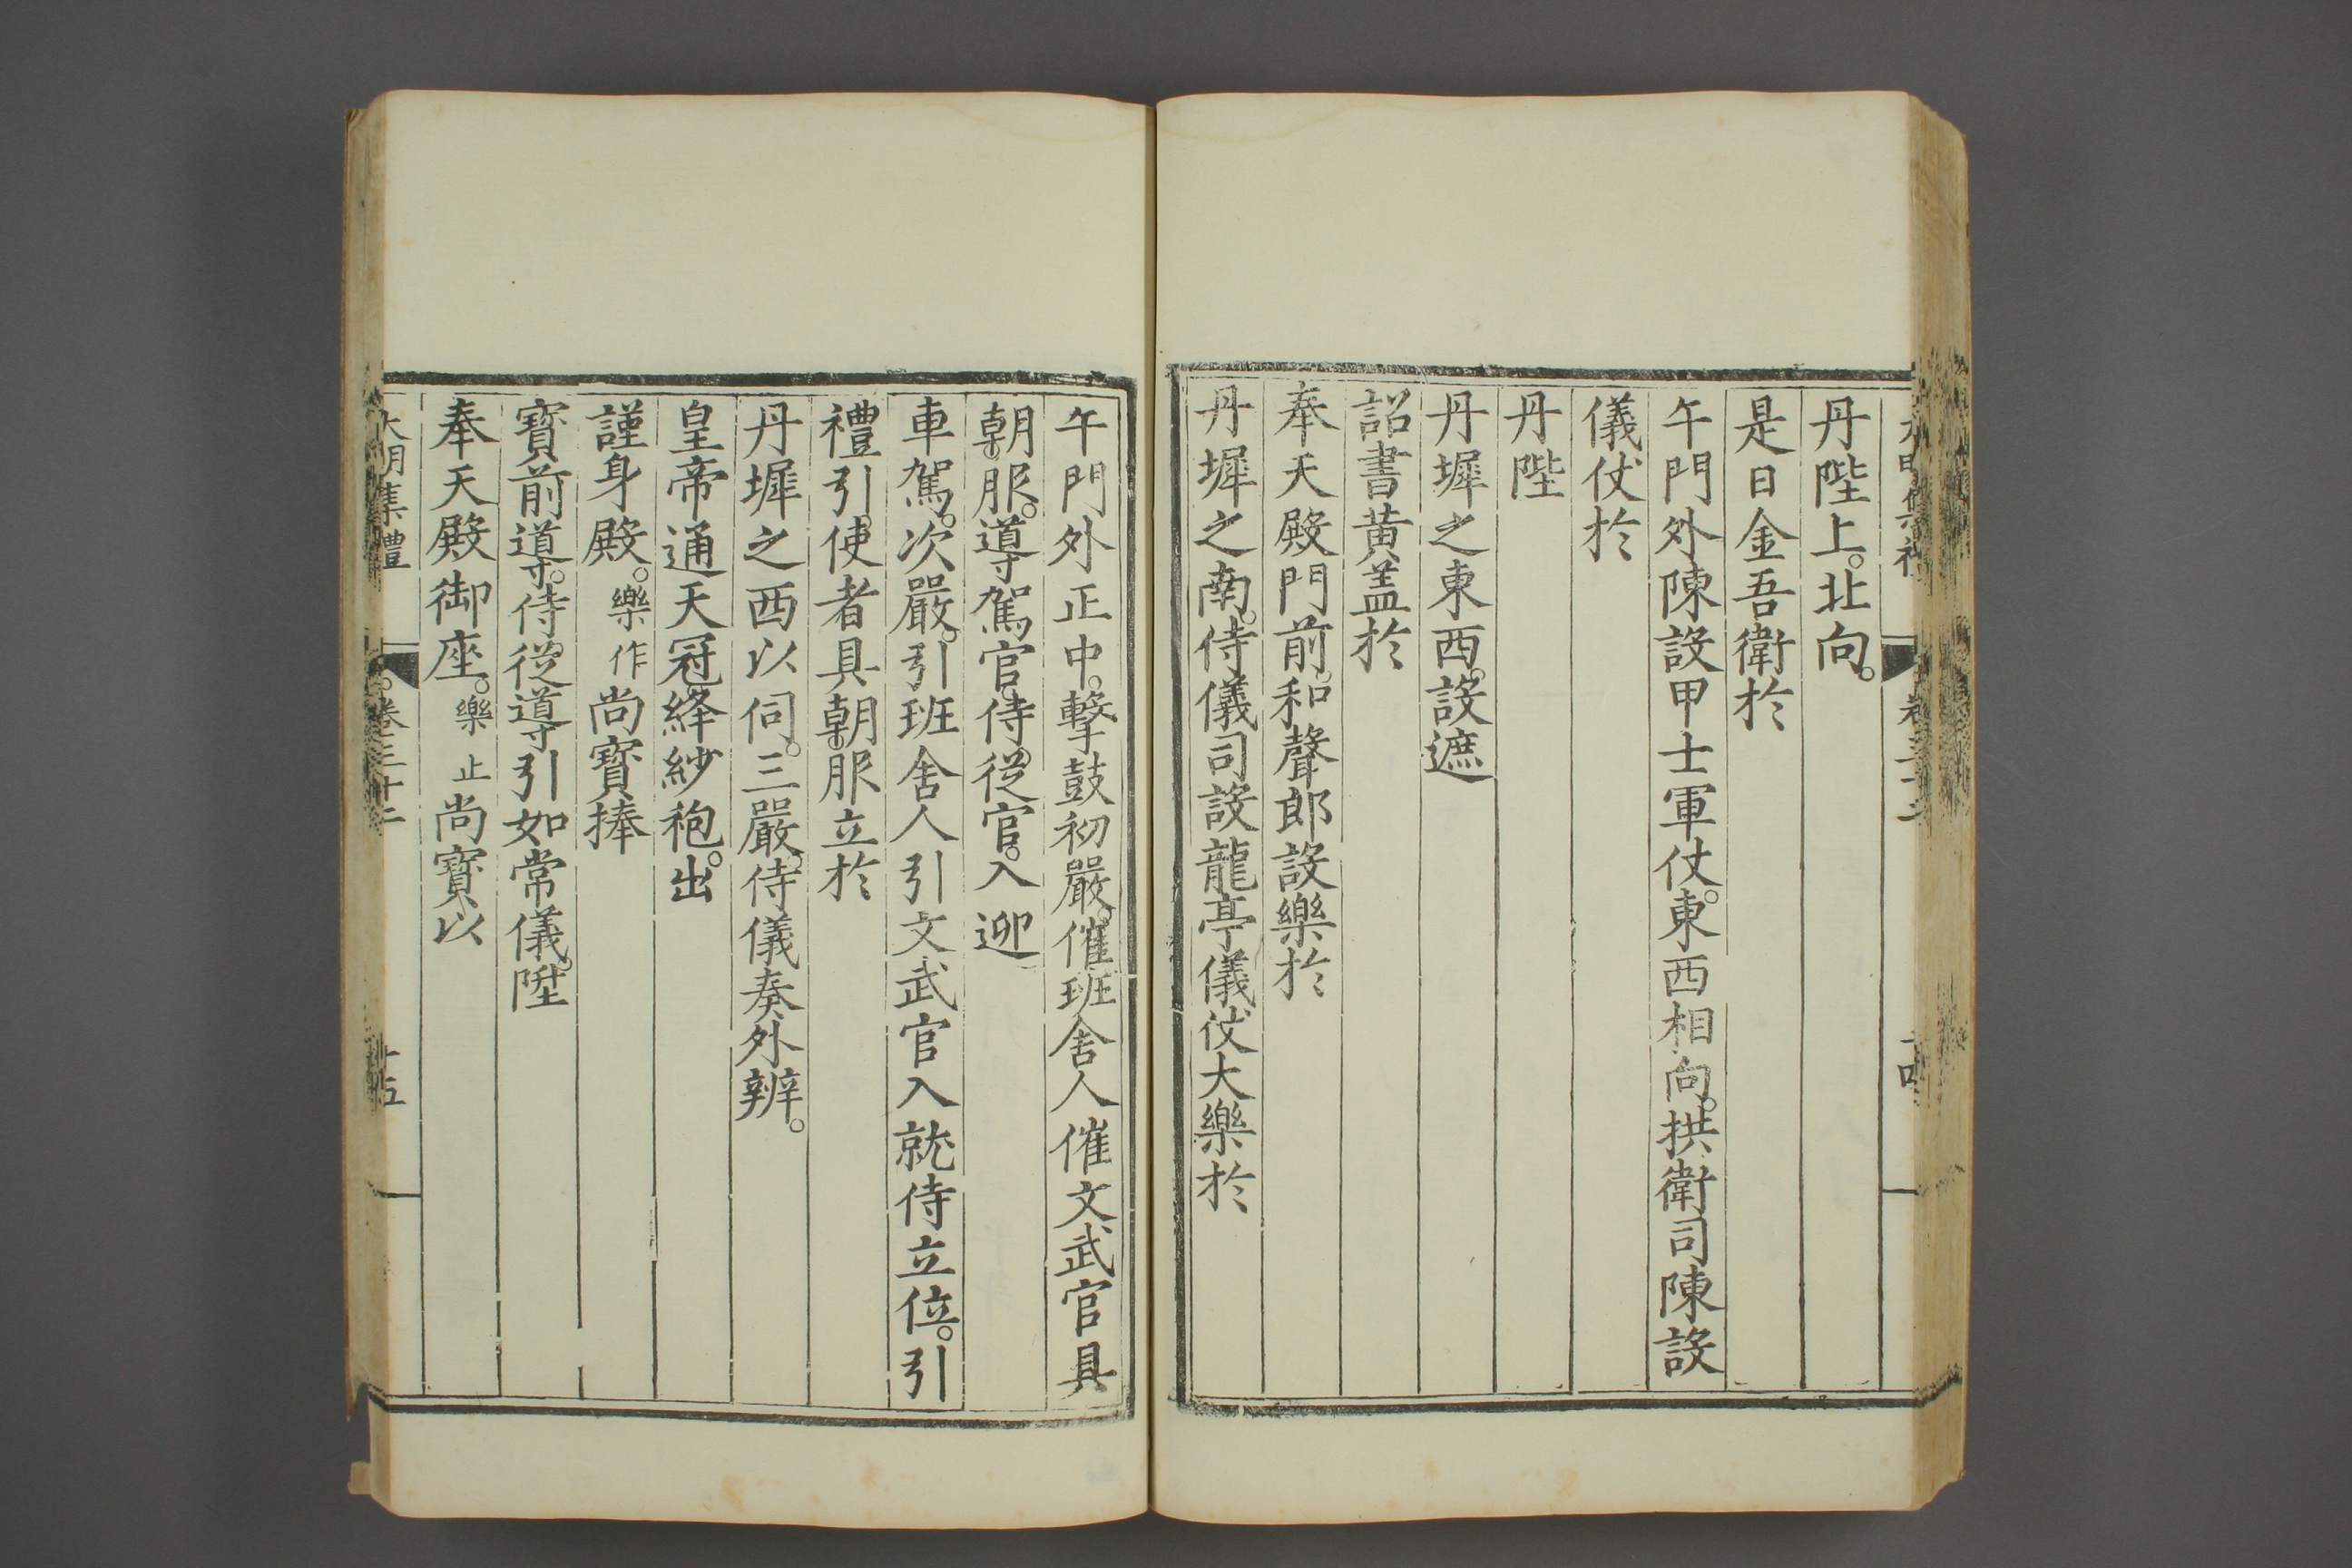 丹陛上。北向。
是日金吾衛於
午門外陳設甲士軍仗。東西相向。拱衛司陳設
儀仗於
丹陛
丹墀之東西。設遮
詔書黄盖於
奉天殿門前。和聲郎設樂於
丹墀之南。侍儀司設龍亭儀仗大樂於
午門外正中。擊鼓初嚴。催班舍人催文武官具
朝服。導駕官。侍從官。入迎
車駕。次嚴。引班舍人引文武官入就侍立位。引
禮引。使者具朝服立於
丹墀之西以伺。三嚴。侍儀奏外辨。
皇帝通天冠。絳紗袍。出
謹身殿。樂作尚寳捧
寳前導。侍從導引如常儀。陞
奉天殿御座。樂止尚寳以
大明集禮 卷三十二 十五